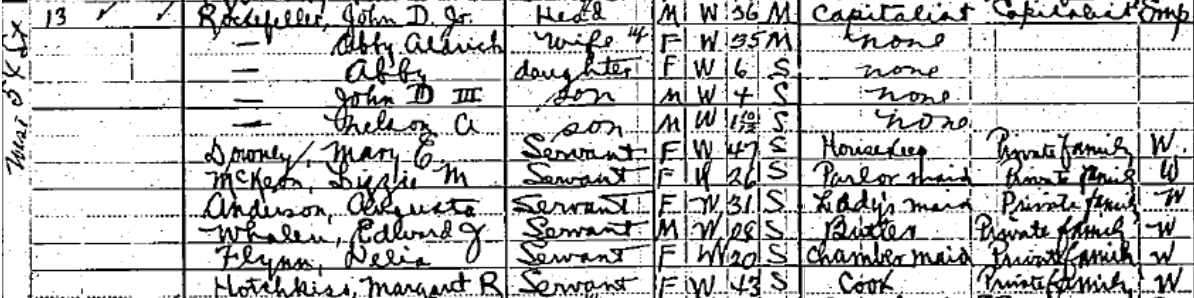 13 Rockefeller, John D. Jr. Head M W 36 M Capitalist Capitalist Emp
— Abby Aldrich Wife 14 F W 35 M none
— Abby daughter F W 6 S none
— John D III son M W 4 S none
— Nelson A son M W 1 10/12 S none
Downey, Mary E. Servant F W 47 S Housekeep Private family W.
McKeon, Lizzie M Servant F W 26 S Parlor maid Private family W
Anderson, Augusta Servant F W 31 S Lady's maid Private family W
Whalen, Edward J Servant M W S Butler Private family W
Flynn, Delia Servant F W 20 S Chamber maid Private family W
Hotchkiss, Margaret R Servant F W 43 S Cook Private family W